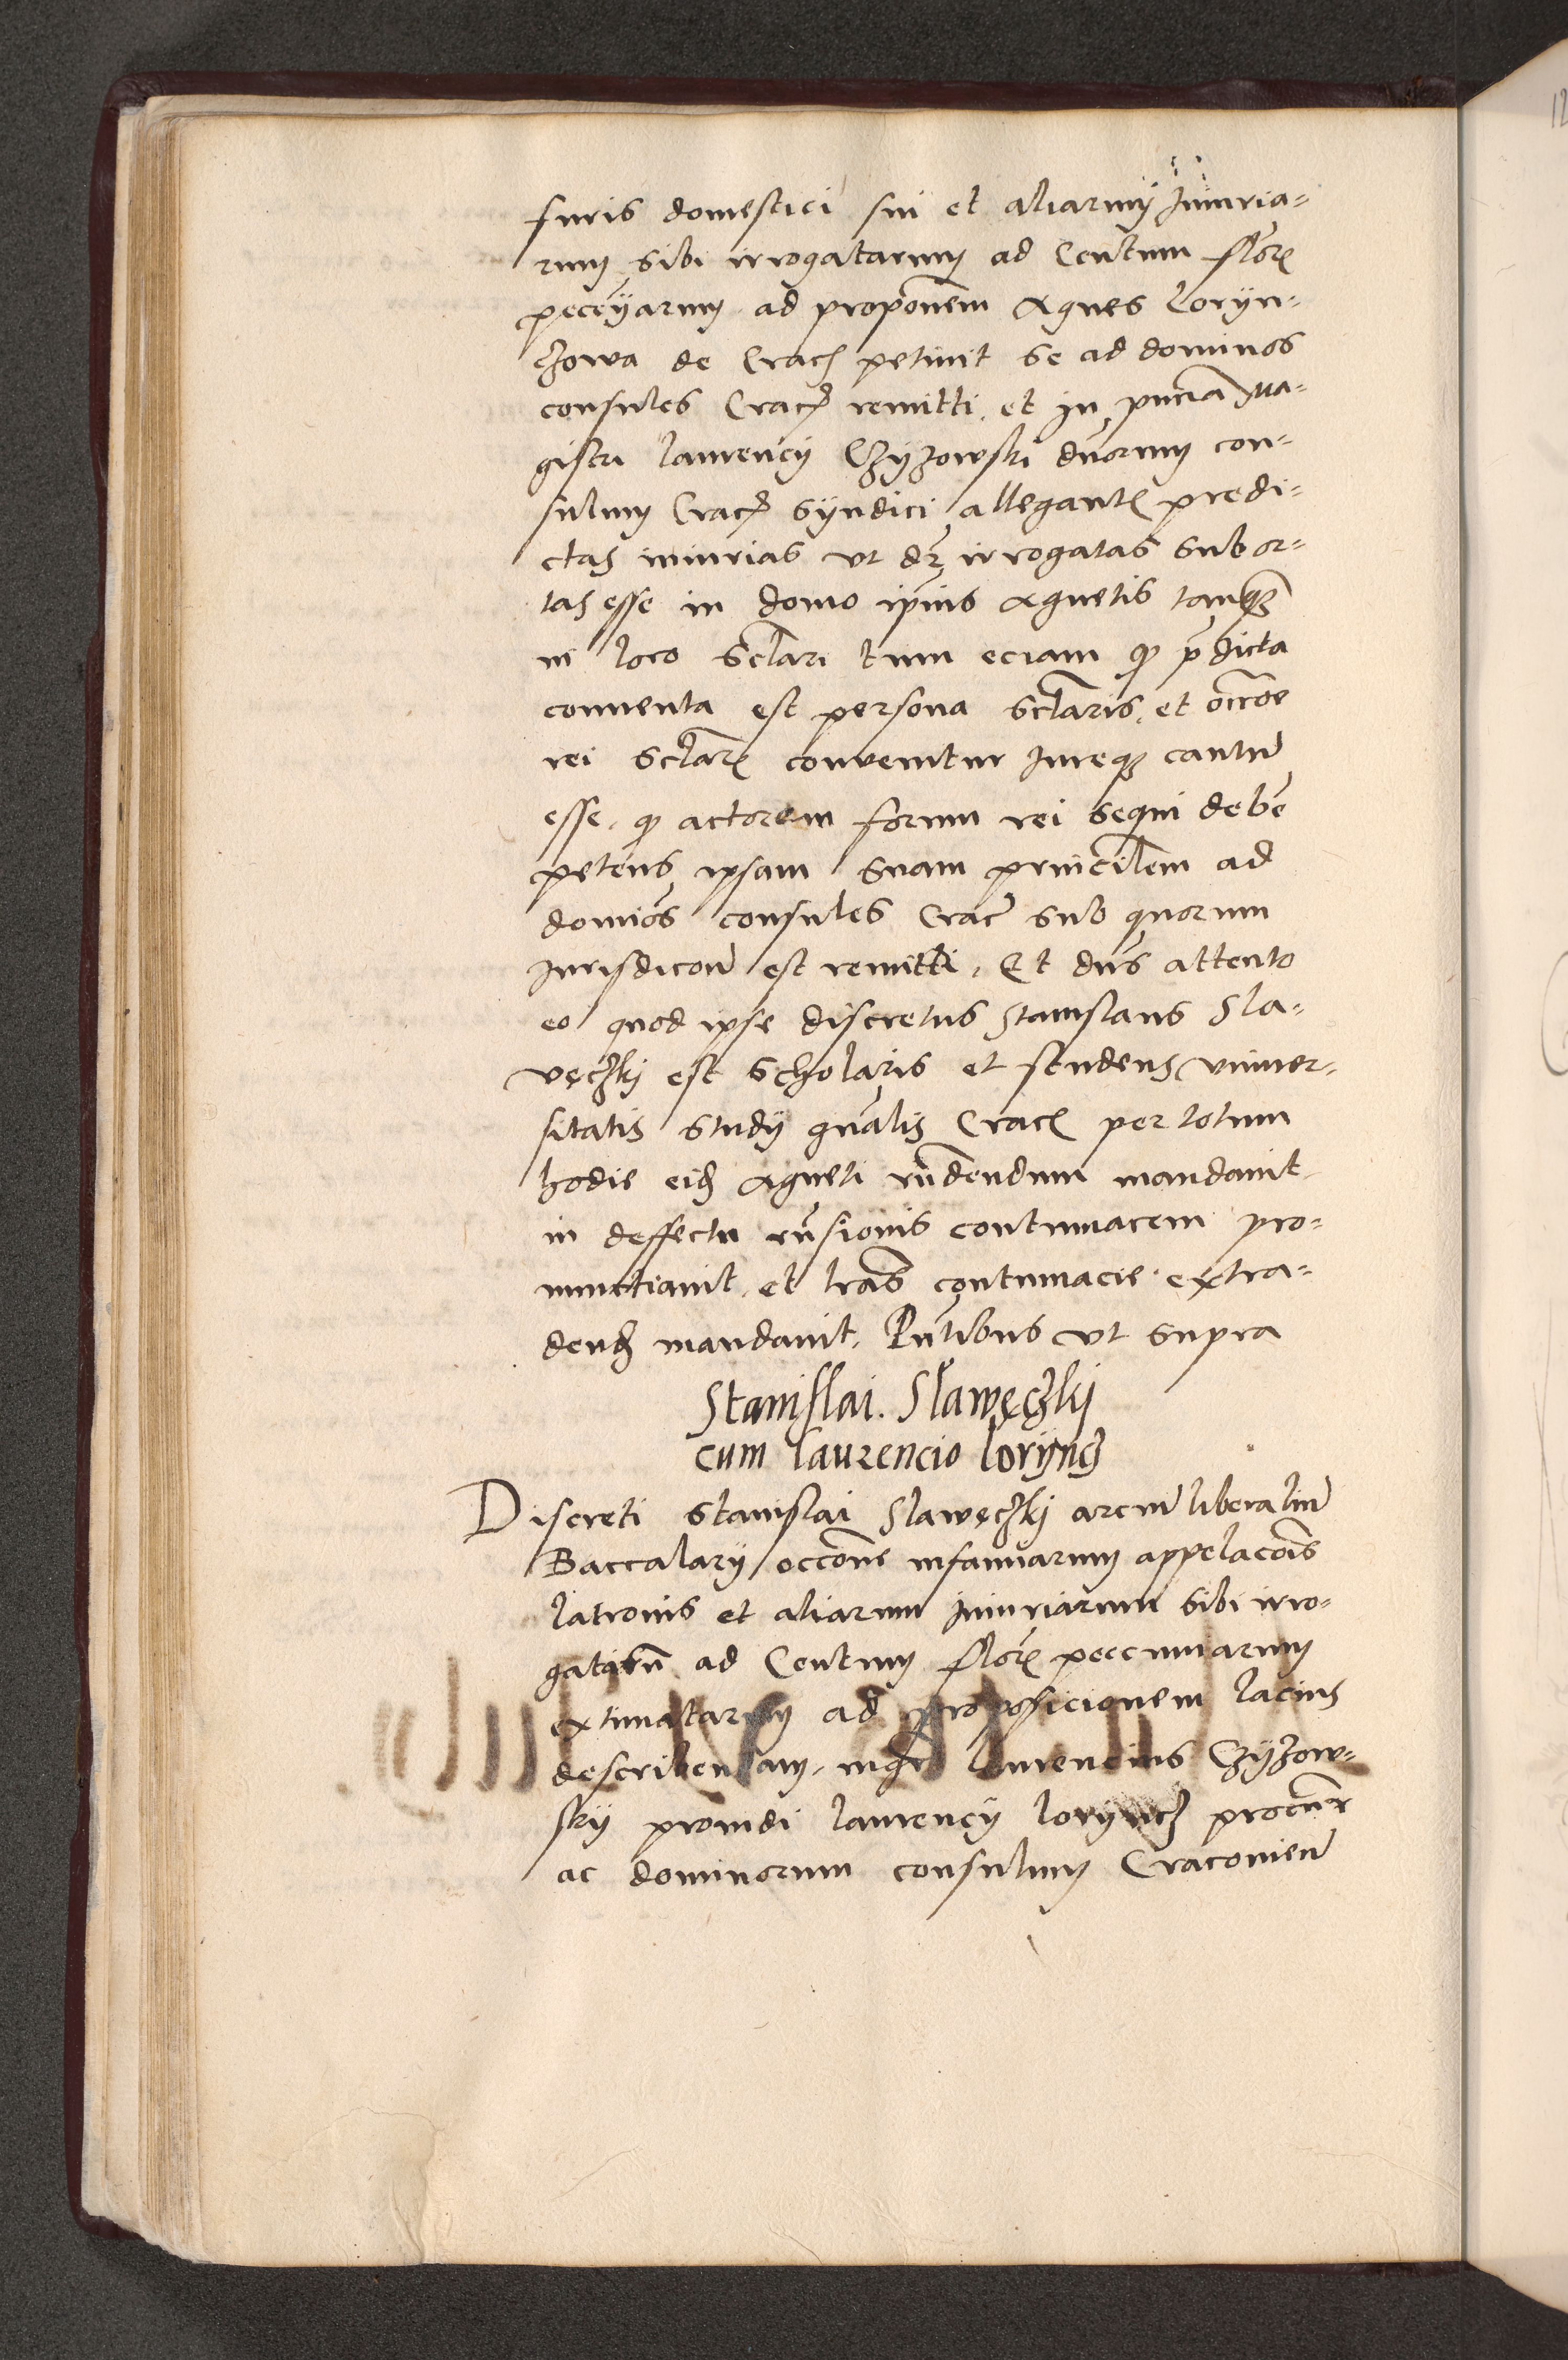 furis domestici sui et aliarum Iniuria-
rum sibi irrogatarum ad Centum flor
peccuĩarum ad proponem Agnes Loryn-
czowa de Crac petiuit se ad dominos
consules Crac remitti et in pnciã Ma-
gistri Laurencÿ Czÿzowski dnorum con-
sulum Crac Sÿndici allegantˀ predi-
ctas iniurias vt dr irrogatas subor-
tas esse in domo ipius Agnetis tanqʒ
in loco sclari tum eciam qp pdicta
conuenta est persona sclaris et occoe
rei sclarˀ convenitur Iureqʒ cautũ
esse qp actorem forum rei sequi debe
petens ipsam suam principlem ad
domios consules Crac sub quorum
Jurisdicon est remitti. Et dns attento
eo quod ipse discretus Stanislaus Sla-
vęczkj est Scholaris et studens vniuer-
sitatis studÿ gnalis Crac per totum
hodie eidˀ Agneti rñdendum mandauit
in deffectu rñsionis contumacem pro-
nunctiauit et lras contumacie extra-
dendˀ mandauit. Pntibus vt supra
Stanislai. Slawęczkj
cum Laurencio Loryncz
Discreti Stanislai Slawęczkj arciũ liberaliũ
Baccalarÿ occone infamiarum appelacois
latronis et aliarum Iniuriarum sibi irro-
gatarũ ad Centum florˀ peccuniarum
extimatarum ad propossicionem lacius
describendam. mgr Laurencius Czÿzow-
skÿ prouidi Laurencÿ Loryncz procũr
ac dominorum consulum Cracouien